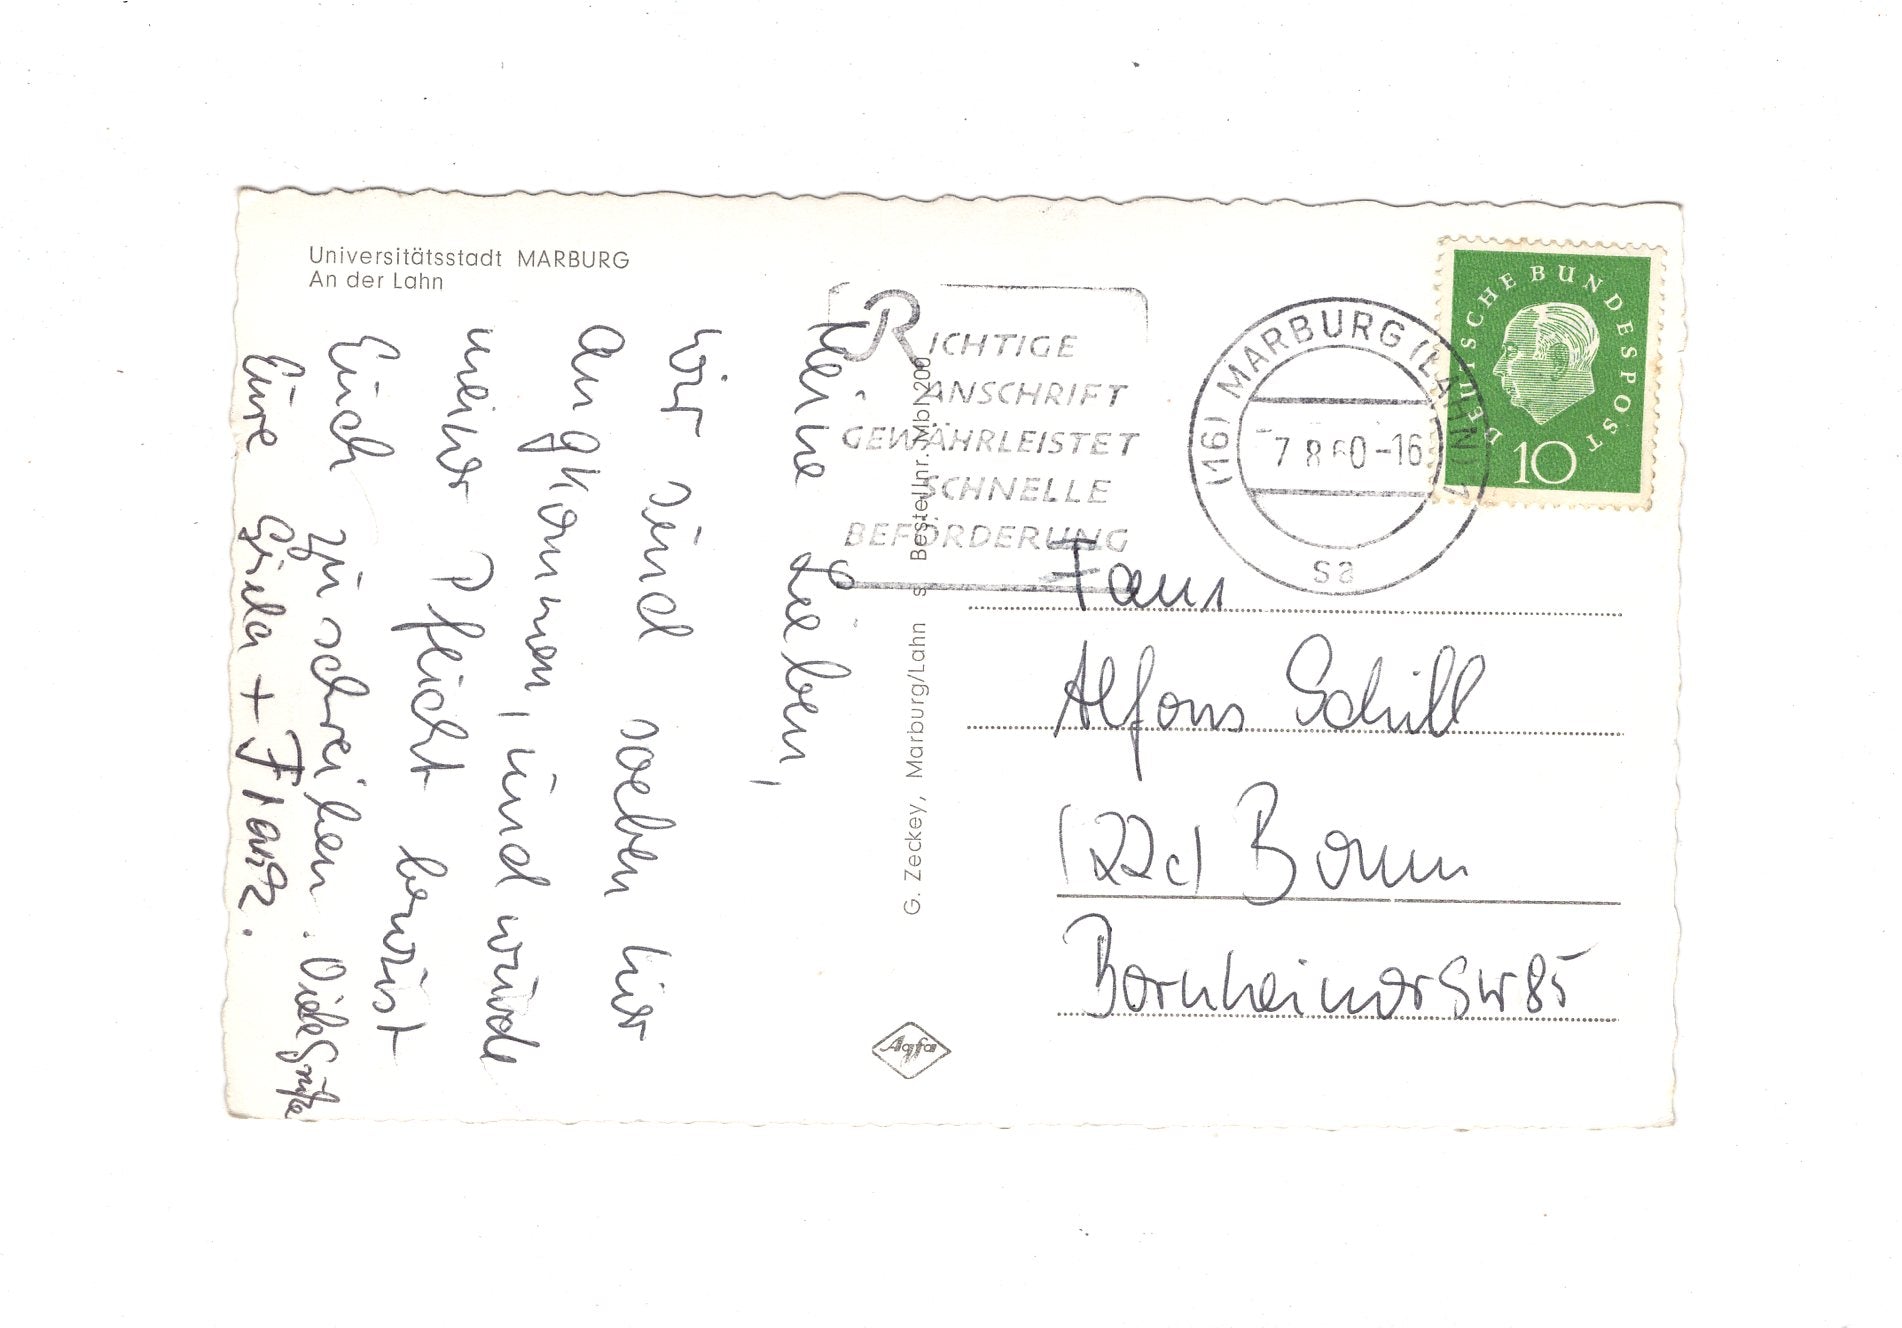 Universitätsstadt MARBURG
An der Lahn
Meine Lieben,
wir sind soeben hier
angekommen, und wurde
meiner Pflicht bewüst
Euch zu schreiben. Viele Grüße
Eure Gisela + Franz.
G. Zeckey, Marburg/Lahn Bestellnr. Mbl 200
RICHTIGE
ANSCHRIFT
GEWÄHRLEISTET
SCHNELLE
BEFÖRDERUNG
(16) MARBURG (LAHN) 1
-7.8.60-16
sa
DEUTSCHE BUNDESPOST
10
Fam
Alfons Schill
(22c) Bonn
Bornheimer Str 85
Agfa